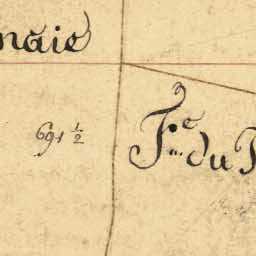 naie
691 ½
F.e du